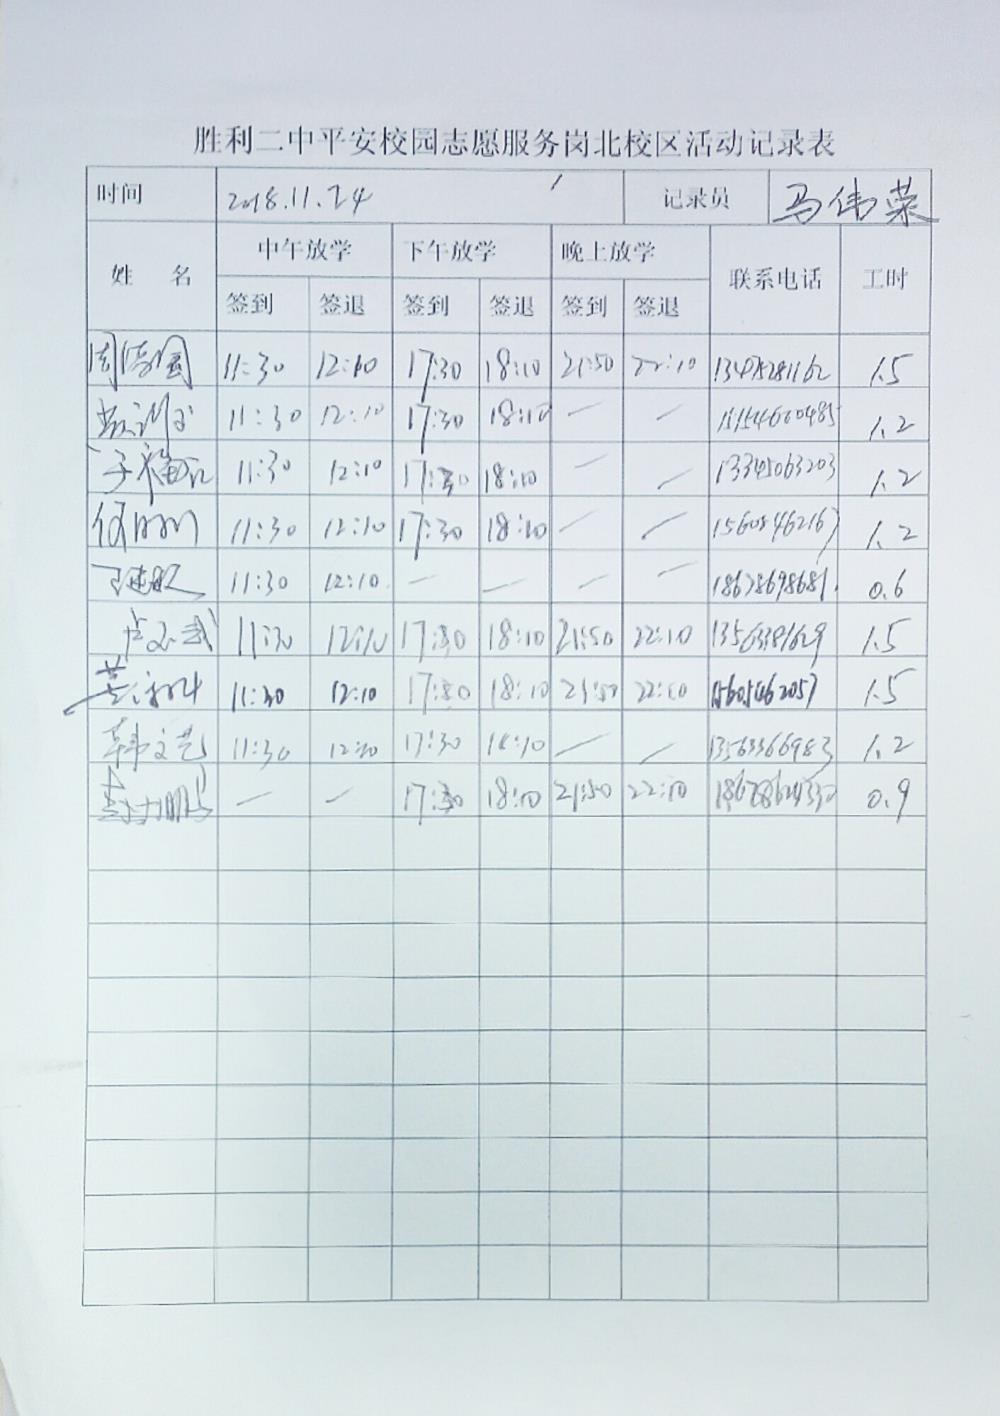 胜利二中平安校园志愿服务岗北校区活动记录表
时间 2018.11.24 记录员 马伟荣
姓 名 中午放学 下午放学 晚上放学 联系电话 工时
签到 签退 签到 签退 签到 签退
11:30 12:10 17:30 18:10 21:50 22:10 1.5
11:30 12:10 17:30 18:10 — — 1.2
11:30 12:10 17:30 18:10 — — 13345063203 1.2
11:30 12:10 17:30 18:10 — — 15605462167 1.2
11:30 12:10 — — — — 18678698681 0.6
11:30 12:10 17:30 18:10 21:50 22:10 1.5
11:30 12:10 17:30 18:10 21:50 22:10 15605462057 1.5
韩文艺 11:30 12:10 17:30 18:10 — — 13563366983 1.2
— — 17:30 18:10 21:50 22:10 18678624332 0.9